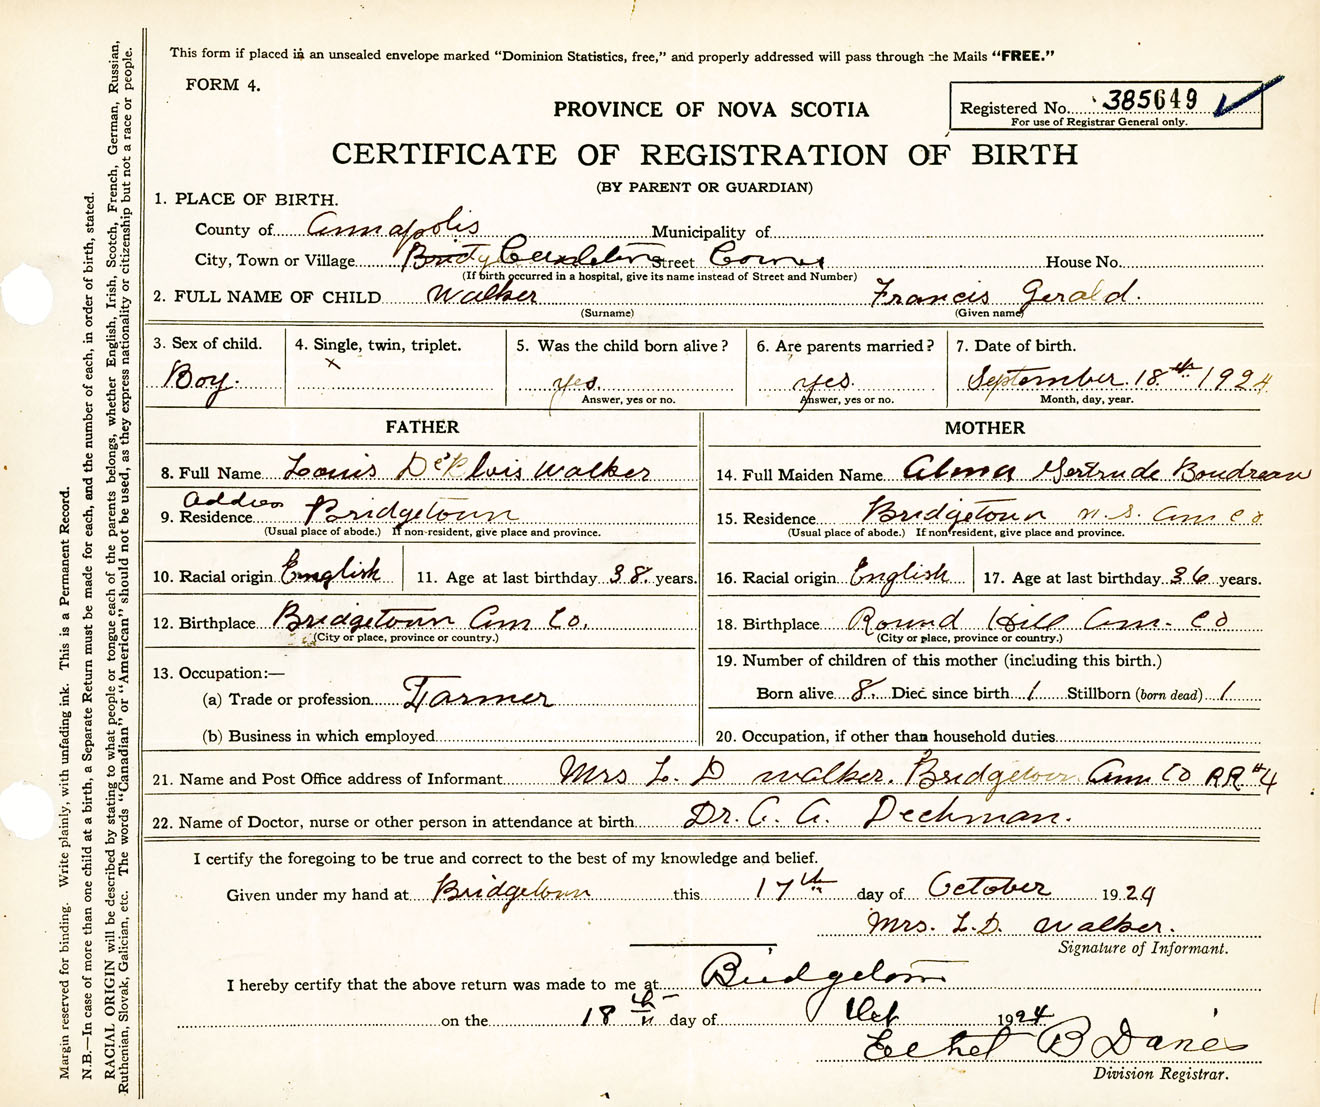 This form if placed in an unsealed envelope marked "Dominion Statistics, free," and properly addressed will pass through the Mails "FREE."
FORM 4.
PROVINCE OF NOVA SCOTIA
Registered No. 385649
For use of Registrar General only.
CERTIFICATE OF REGISTRATION OF BIRTH
(BY PARENT OR GUARDIAN)
1. PLACE OF BIRTH.
County of Annapolis Municipality of
City, Town or Village Street House No.
(If birth occurred in a hospital, give its name instead of Street and Number)
2. FULL NAME OF CHILD Walker Francis Gerald.
(Surname) (Given name)
3. Sex of child. 4. Single, twin, triplet. 5. Was the child born alive? 6. Are parents married? 7. Date of birth.
Boy. x yes. yes. September 18th 1924
Answer, yes or no. Answer, yes or no. Month, day, year.
FATHER MOTHER
8. Full Name Louis Walker 14. Full Maiden Name Alma Gertrude Boudreau
Address
9. Residence Bridgetown 15. Residence Bridgetown N.S. Ann Co.
(Usual place of abode.) If non-resident, give place and province. (Usual place of abode.) If non-resident, give place and province.
10. Racial origin English 11. Age at last birthday 38. years. 16. Racial origin English 17. Age at last birthday 36 years.
12. Birthplace Bridgetown Ann Co. 18. Birthplace Round Hill Ann. Co
(City or place, province or country.) (City or place, province or country.)
13. Occupation:— 19. Number of children of this mother (including this birth.)
(a) Trade or profession Farmer Born alive 8. Died since birth 1 Stillborn (born dead) 1
(b) Business in which employed 20. Occupation, if other than household duties
21. Name and Post Office address of Informant Mrs L. D Walker. Bridgetown Ann Co RR #4
22. Name of Doctor, nurse or other person in attendance at birth Dr. A. A. Dechman.
I certify the foregoing to be true and correct to the best of my knowledge and belief.
Given under my hand at Bridgetown this 17th day of October 1924
Mrs. L.D. Walker.
Signature of Informant.
I hereby certify that the above return was made to me at Bridgetown
on the 18th day of Oct 1924
Ethel B
Division Registrar.
Margin reserved for binding. Write plainly, with unfading ink. This is a Permanent Record.
N.B.—In case of more than one child at a birth, a Separate Return must be made for each, and the number of each, in order of birth, stated.
RACIAL ORIGIN will be described by stating to what people or tongue each of the parents belongs, whether English, Irish, Scotch, French, German, Russian,
Ruthenian, Slovak, Galician, etc. The words "Canadian" or "American" should not be used, as they express nationality or citizenship but not a race or people.